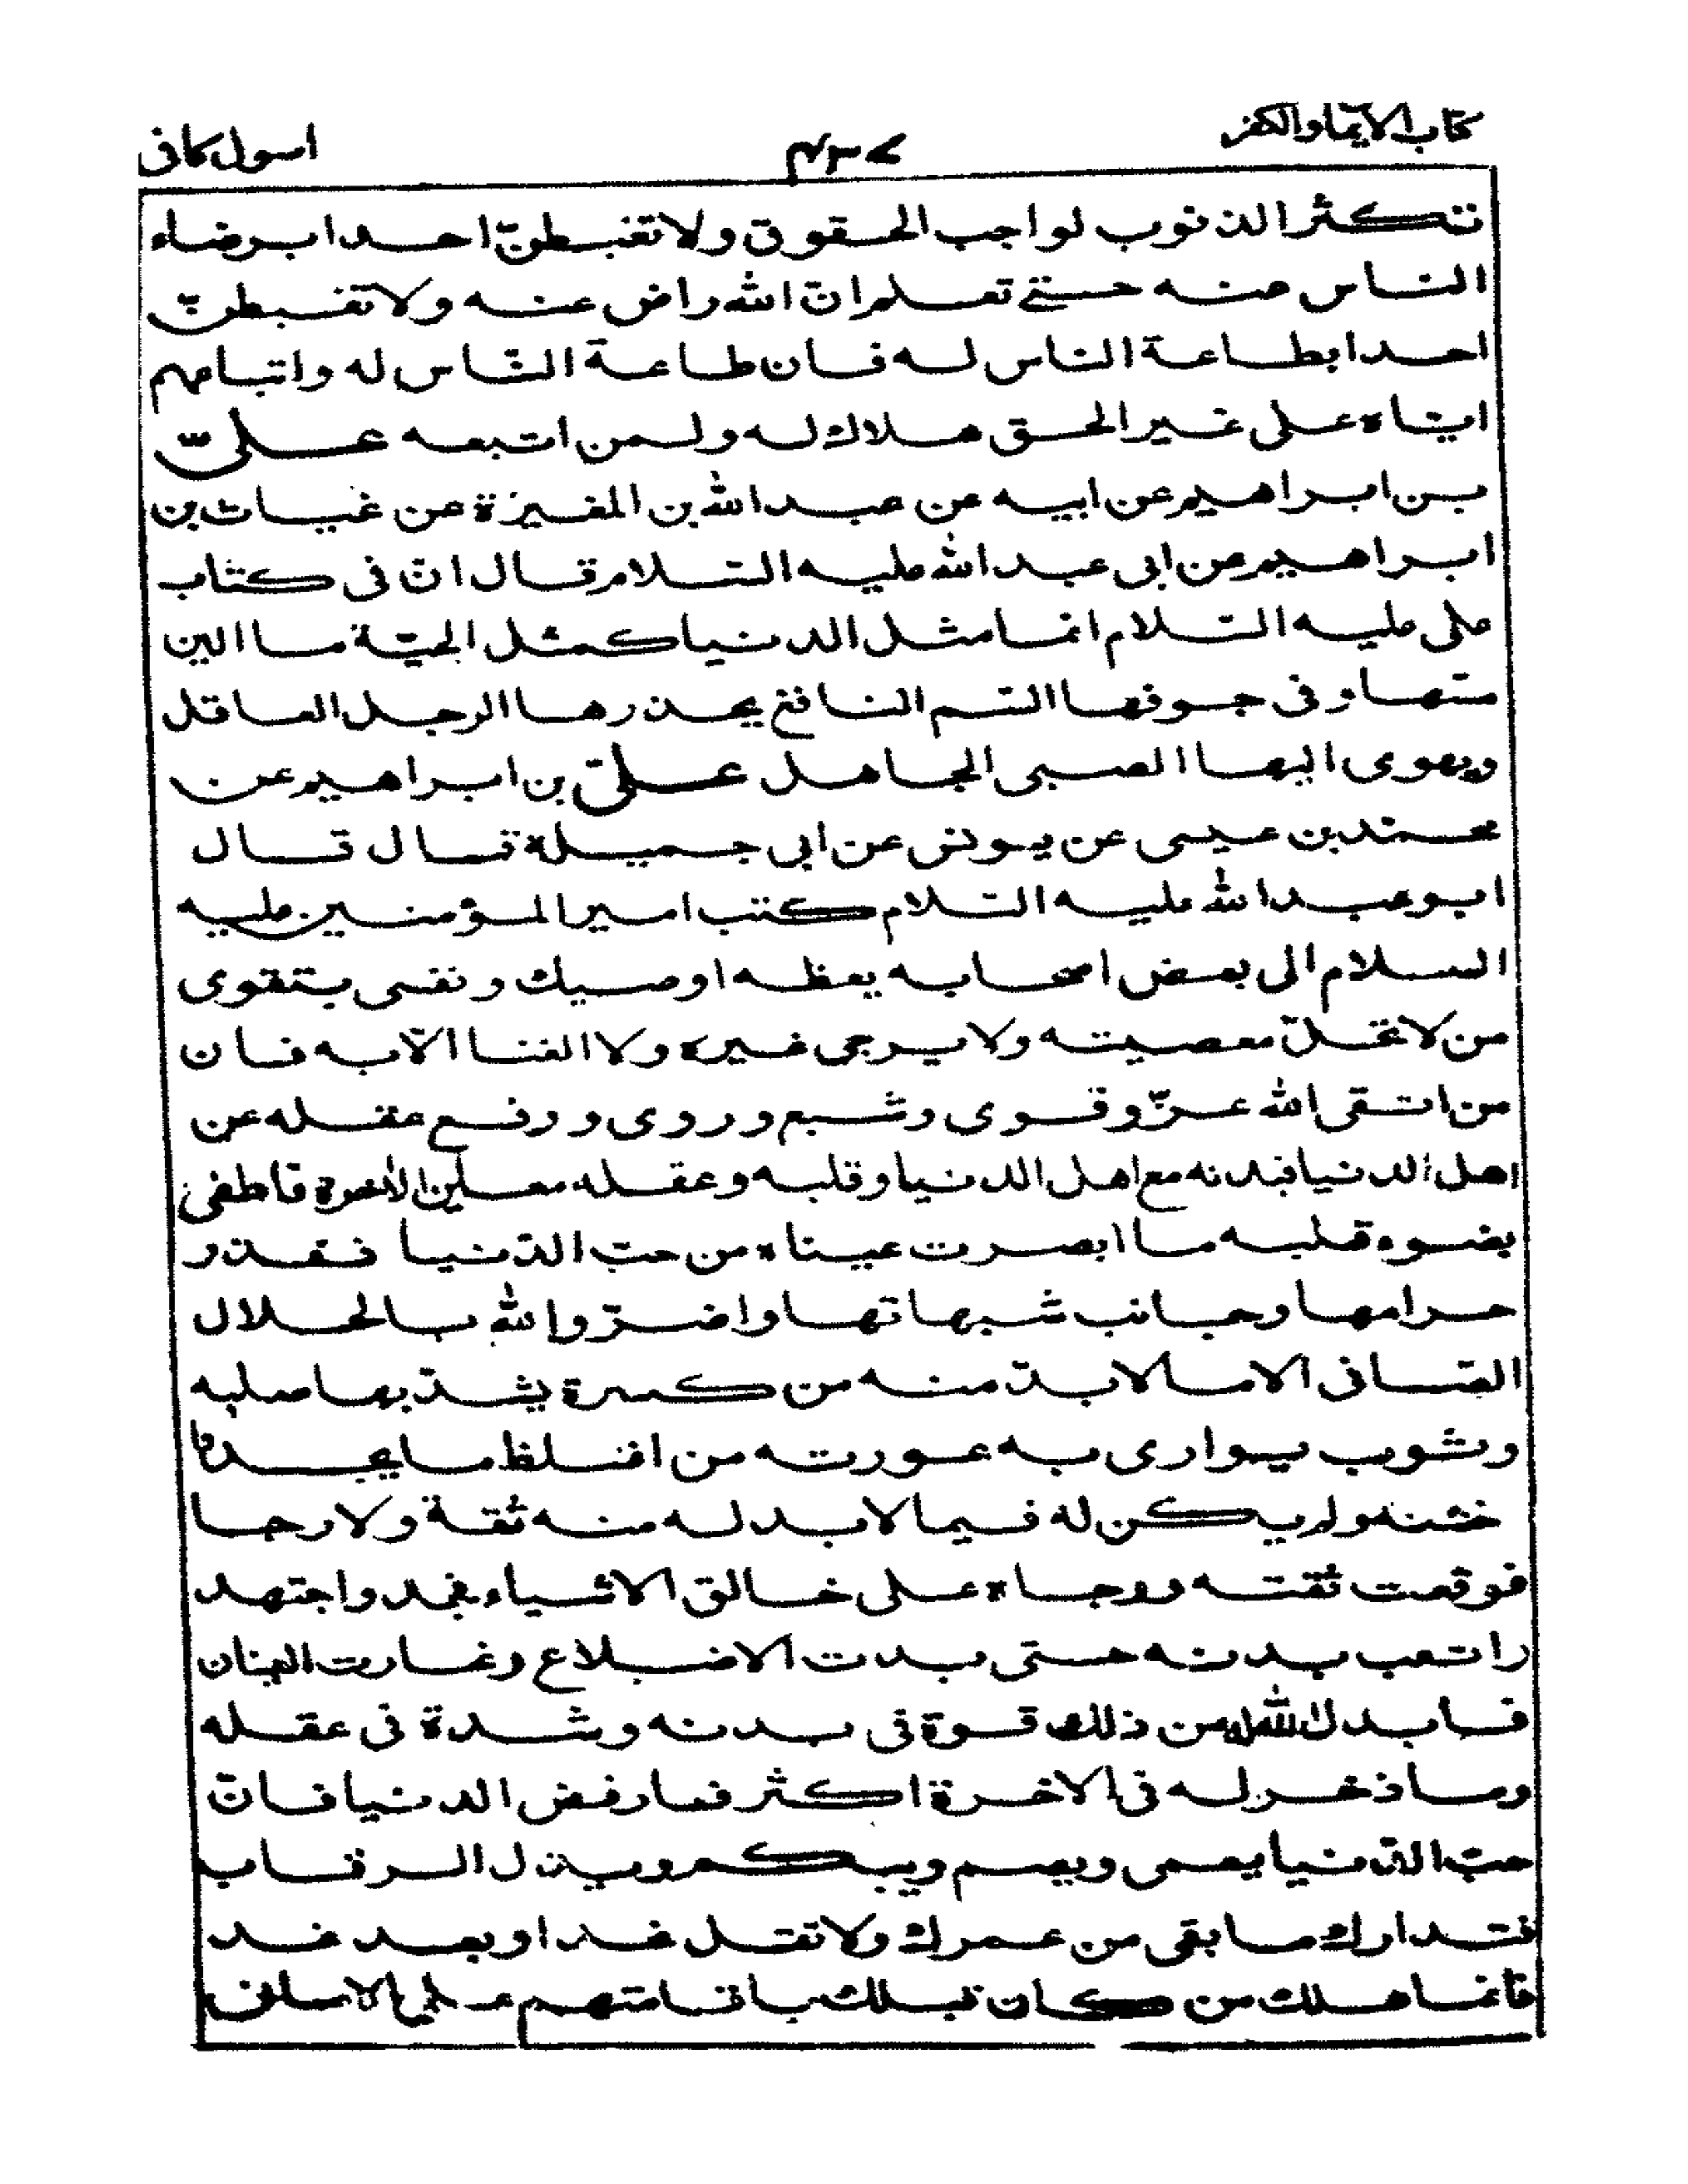 كتاب الايمان والكفر
۴۳۷
اسول كافى
تتكثر الذنوب لواجب الحقوق ولا تغبطنّ احدا برضاء
الناس منه حتى تعلم انّ الله راض عنه ولا تغبطنّ
احدا بطاعة الناس له فان طاعة النّاس له واتباعهم
ايّاه على غير الحق هلاك له ولمن اتبعه علىّ
بن ابراهيم عن ابيه عن عبدالله بن المغيرة عن غياث بن
ابراهيم عن ابى عبدالله عليه السّلام قال انّ فى كتاب
على عليه السّلام انّما مثل الدنيا كمثل الحيّة ما الين
مسّها وفى جوفها السّم الناقع يحذرها الرجل العاقل
ويهوى اليها الصبى الجاهل علىّ بن ابراهيم عن
محمّد بن عيسى عن يونس عن ابى جميلة قال قال
ابو عبدالله عليه السّلام كتب امير المؤمنين عليه
السلام الى بعض اصحابه يعظه اوصيك ونفسى بتقوى
من لا تحلّ معصيته ولا يرجى غيره ولا الغنا الّا به فان
من اتقى الله عزّ وقوى وشبع وروى ورفع عقله عن
اهل الدنيا فبدنه مع اهل الدنيا وقلبه وعقله معاين الاخرة فاطفى
بضوء قلبه ما ابصرت عيناه من حبّ الدّنيا فقذر
حرامها وجانب شبهاتها واضرّ والله بالحلال
الصّافى الا ما لا بدّ منه من كسرة يشدّ بها صلبه
وثوب يوارى به عورته من اغلظ ما يجد و
خشنه ولم يكن له فيما لا بد له منه ثقة ولا رجا
فوقعت ثقته ورجاه على خالق الاشياء فجد واجتهد
واتعب بدنه حتى بدت الاضلاع وغارت العينان
فابدل الله له من ذلك قوة فى بدنه وشدة فى عقله
وما ذخر له فى الاخرة اكثر فارفض الدنيا فانّ
حبّ الدّنيا يعمى ويصم ويبكم ويذل الرقاب
فتدارك ما بقى من عمرك ولا تقل غدا وبعد غد
فانّما هلك من كان قبلك باقامتهم على الامانى